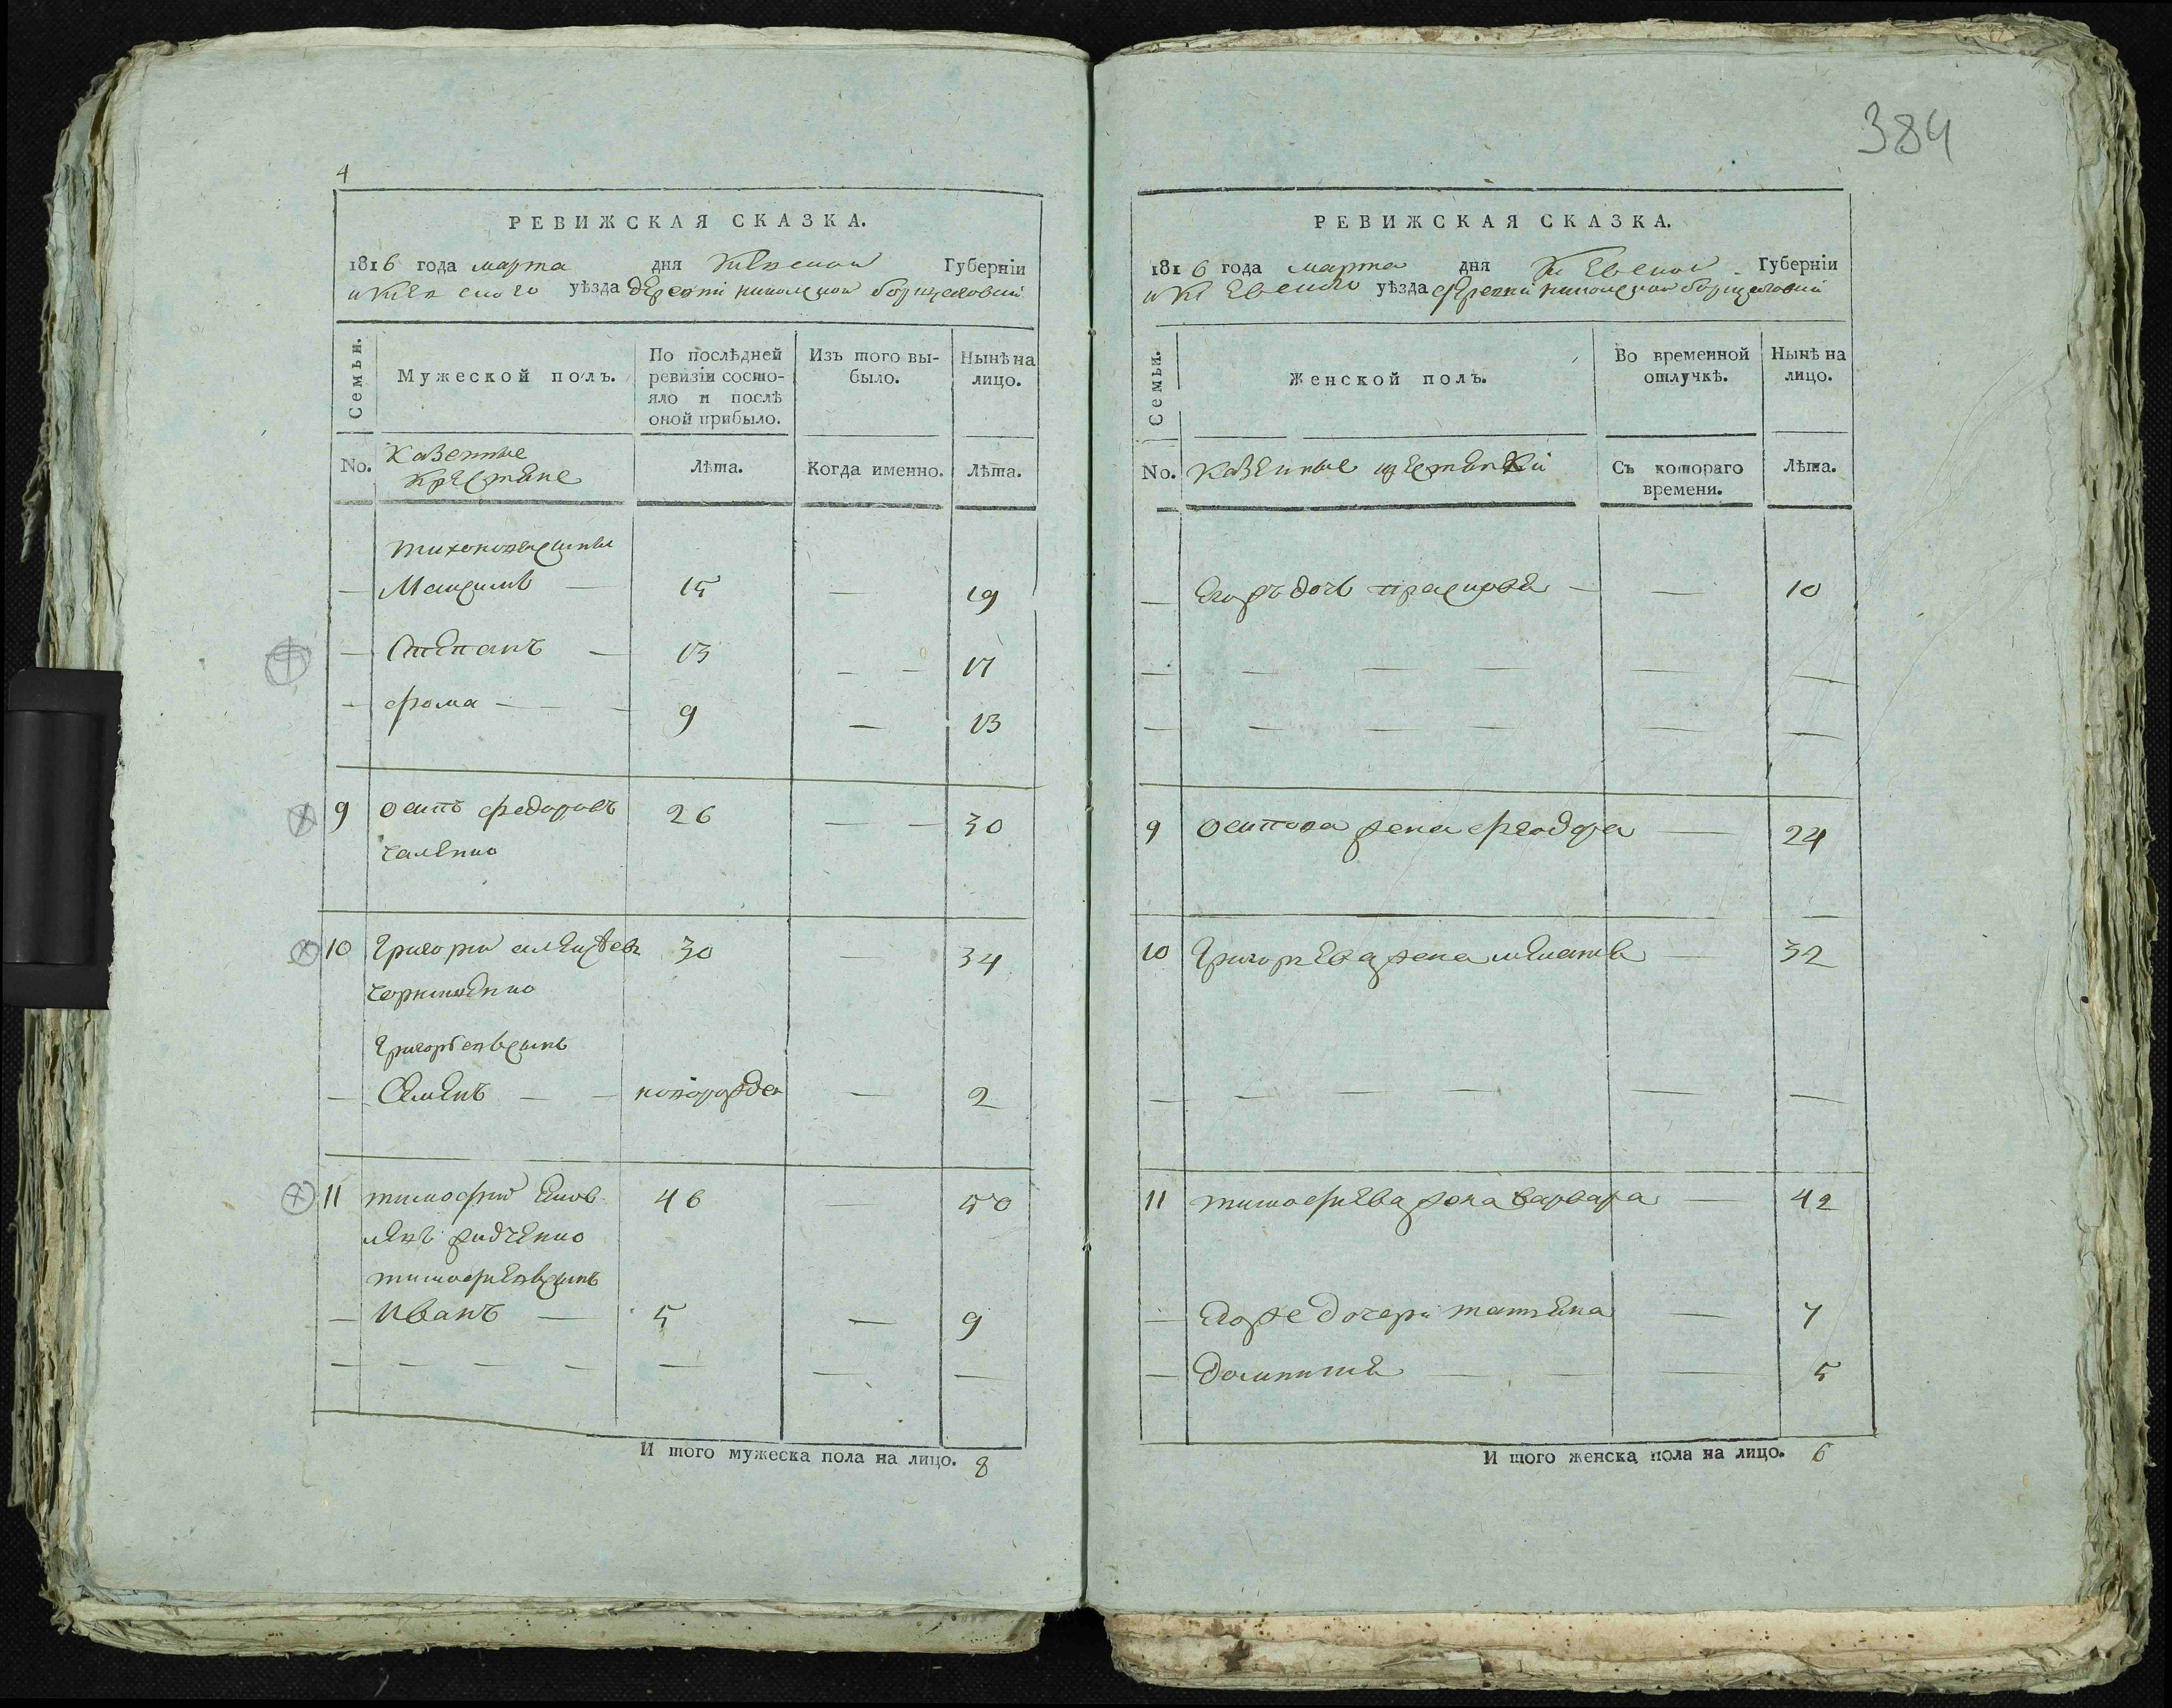 4
РЕВИЖСКАЯ СКАЗКА.
1816 года марта дня Киевской Губерніи
и Киевского уѣзда деревни никольской борщаговки
Семьи.
Мужеской полъ.
По послѣдней ревизіи состояло и послѣ оной прибыло.
Изъ того выбыло.
Нынѣ на лицо.
No.
Казенные
крестяне
Лѣта.
Когда именно.
Лѣта.
— Максимъ — 15 — 19
— Степанъ — 13 — — 17
— фома — — — 9 — 13
9 осипъ федоровъ 26 — — 30
10 григорий алексѣевъ 30 — 34
— Семенъ — — новорожден — 2
11 тимофий 46 — 50
— Иванъ — 5 — 9
— — — — — — —
И того мужеска пола на лицо. 8
384
РЕВИЖСКАЯ СКАЗКА.
1816 года марта дня Киевской Губерніи
и Киевского уѣзда деревни никольской борщаговки
Семьи.
Женской полъ.
Во временной отлучкѣ.
Нынѣ на лицо.
No.
казенные крестянки
Съ котораго времени.
Лѣта.
— дочь — — 10
— — — — — —
— — — — — —
9 осипова жена феодора — 24
10 григорьева жена — 32
— — — — — —
11 тимофиева жона варвара — 42
— его же дочери татияна — 7
— — — — 5
И того женска пола на лицо. 6